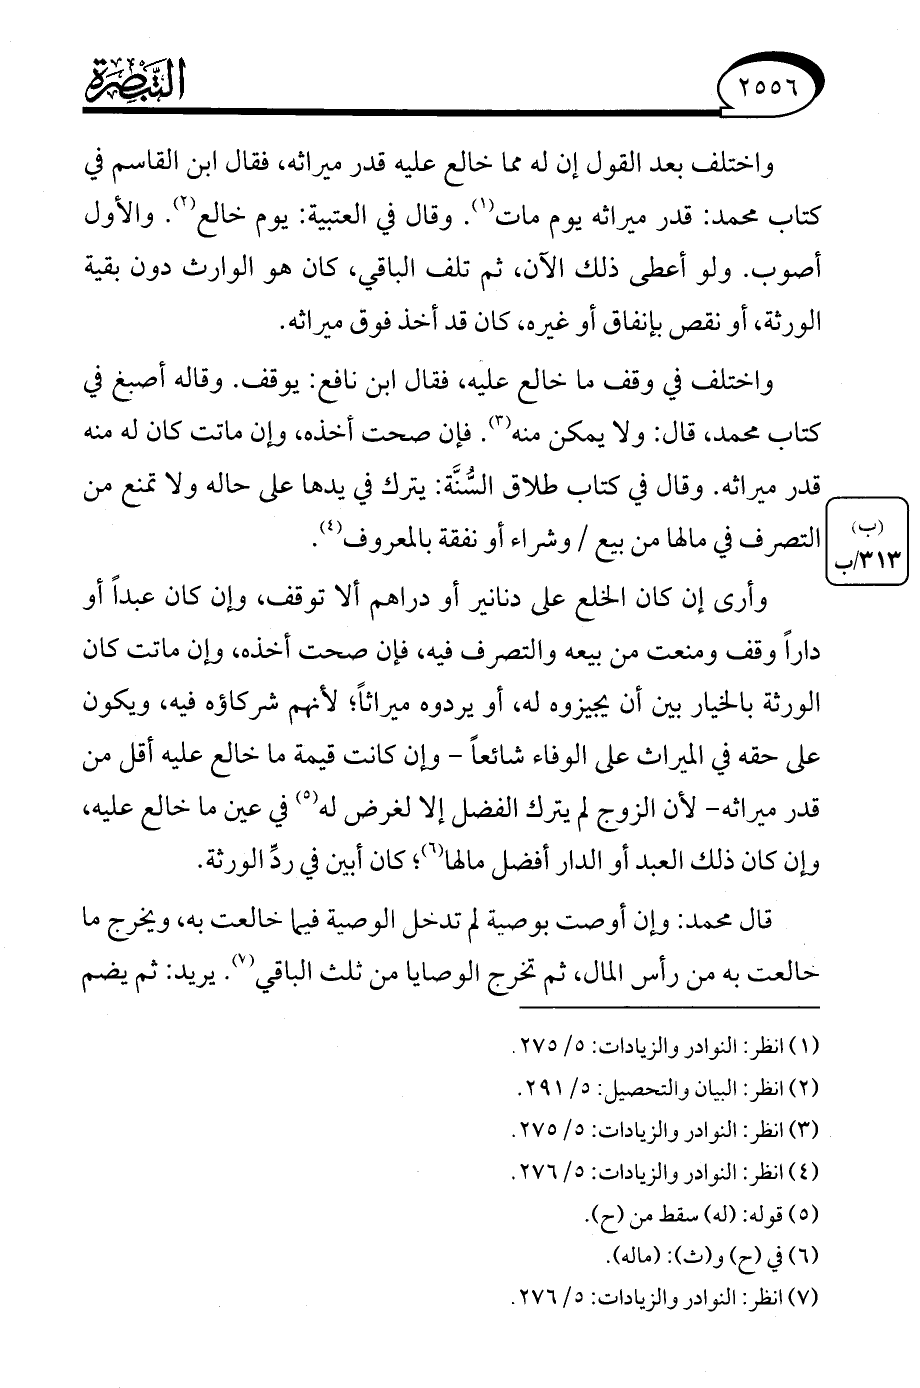 التبصرة
٢٥٥٦
واختلف بعد القول إن له مما خالع عليه قدر ميراثه، فقال ابن القاسم في
كتاب محمد: قدر ميراثه يوم مات(١). وقال في العتبية: يوم خالع(٢). والأول
أصوب. ولو أعطى ذلك الآن، ثم تلف الباقي، كان هو الوارث دون بقية
الورثة، أو نقص بإنفاق أو غيره، كان قد أخذ فوق ميراثه.
واختلف في وقف ما خالع عليه، فقال ابن نافع: يوقف. وقاله أصبغ في
كتاب محمد، قال: ولا يمكن منه(٣). فإن صحت أخذه، وإن ماتت كان له منه
قدر ميراثه. وقال في كتاب طلاق السُّنَّة: يترك في يدها على حاله ولا تمنع من
التصرف في مالها من بيع / وشراء أو نفقة بالمعروف(٤).
(ب)
٣١٣/ب
وأرى إن كان الخلع على دنانير أو دراهم ألا توقف، وإن كان عبداً أو
داراً وقف ومنعت من بيعه والتصرف فيه، فإن صحت أخذه، وإن ماتت كان
الورثة بالخيار بين أن يجيزوه له، أو يردوه ميراثاً؛ لأنهم شركاؤه فيه، ويكون
على حقه في الميراث على الوفاء شائعاً - وإن كانت قيمة ما خالع عليه أقل من
قدر ميراثه- لأن الزوج لم يترك الفضل إلا لغرض له(٥) في عين ما خالع عليه،
وإن كان ذلك العبد أو الدار أفضل مالها(٦)؛ كان أبين في ردِّ الورثة.
قال محمد: وإن أوصت بوصية لم تدخل الوصية فيما خالعت به، ويخرج ما
خالعت به من رأس المال، ثم تخرج الوصايا من ثلث الباقي(٧). يريد: ثم يضم
(١) انظر: النوادر والزيادات: ٥/ ٢٧٥.
(٢) انظر: البيان والتحصيل: ٥/ ٢٩١.
(٣) انظر: النوادر والزيادات: ٥/ ٢٧٥.
(٤) انظر: النوادر والزيادات: ٥/ ٢٧٦.
(٥) قوله: (له) سقط من (ح).
(٦) في (ح) و(ث): (ماله).
(٧) انظر: النوادر والزيادات: ٥/ ٢٧٦.